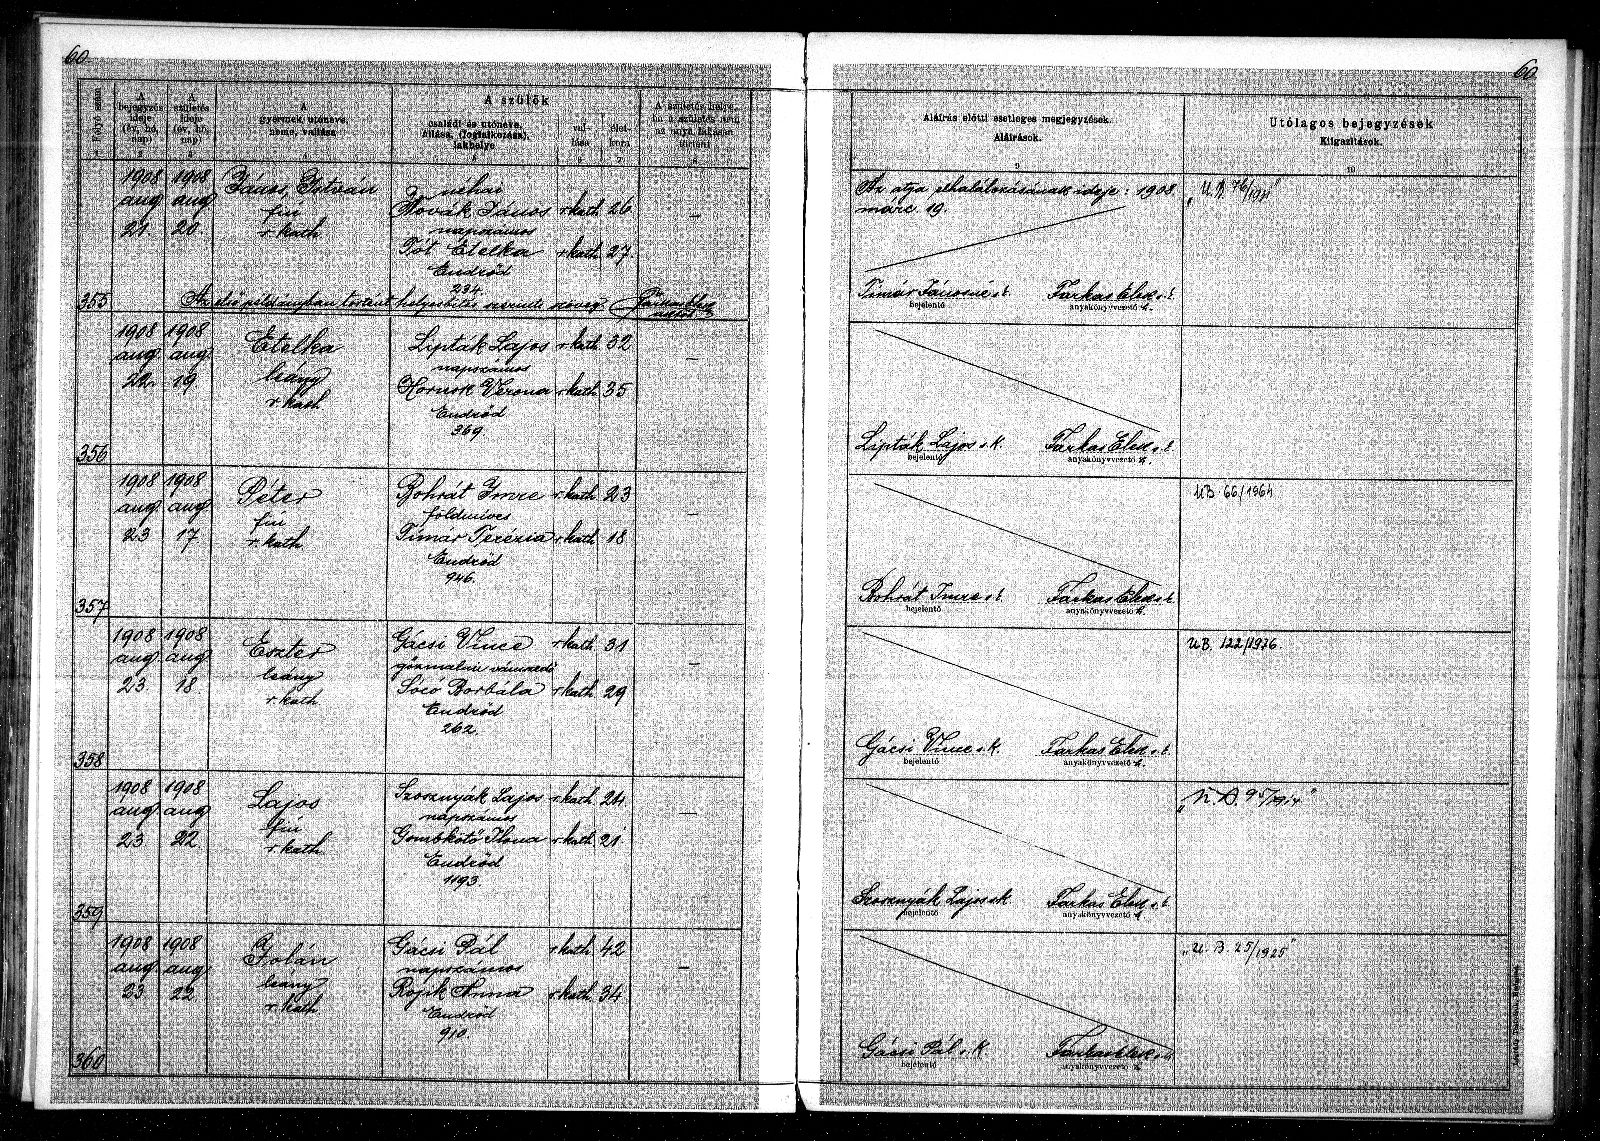 60
60
Folyó szám
A bejegyzés ideje (év, hó, nap)
A születés ideje (év, hó, nap)
A gyermek utóneve, neme, vallása
A szülők
családi és utóneve, állása (foglalkozása), lakhelye
vallása
életkora
A születés helye, ha a születés nem az anya lakásán történt
Aláírás előtti esetleges megjegyzések.
Aláírások.
Utólagos bejegyzések
Kiigazítások.
9
10
355
1908 aug 21.
1908 aug 20.
János, István
fiú
r. kath
néhai
Novák János r. kath 26
napszámos
Tót Etelka r. kath 27.
Endrőd
234.
—
Az első példányban történt helyesbítés szerinti szöveg.
Az atja elhalálozásának ideje: 1908
márc. 19.
Tímár Jánosné s.k.
bejelentő
Farkas Elek s.k.
anyakönyvvezető h.
„U.B. 76/1911"
356
1908 aug 22.
1908 aug 19
Etelka
leány
r. kath
Lipták Lajos r. kath 32
napszámos
Hornok Verona r. kath 35
Endrőd
369.
—
Lipták Lajos s.k.
bejelentő
Farkas Elek s.k.
anyakönyvvezető h.
357
1908 aug 23
1908 aug 17
Péter
fiú
r. kath
Rohrát Imre r. kath 23
földmíves
Tímár Terézia r. kath 18
Endrőd
946.
—
Rohrát Imre s.k.
bejelentő
Farkas Elek s.k.
anyakönyvvezető h.
UB 66/1964
358
1908 aug 23
1908 aug 18.
Eszter
leány
r. kath
Gácsi Vince r. kath 31
gőzmalmi vámszedő
Sócó Borbála r. kath 29
Endrőd
262.
—
Gácsi Vince s.k.
bejelentő
Farkas Elek s.k.
anyakönyvvezető h.
UB. 122/1976
359
1908 aug 23
1908 aug 22.
Lajos
fiú
r. kath
Szosznyák Lajos r. kath 24
napszámos
Gombkötő Ilona r. kath 21
Endrőd
1193.
—
Szosznyák Lajos s.k.
bejelentő
Farkas Elek s.k.
anyakönyvvezető h.
360
1908 aug 23
1908 aug 22.
Jolán
leány
r. kath
Gácsi Pál r. kath 42
napszámos
Rojik Anna r. kath 34
Endrőd
910.
—
Gácsi Pál s.k.
bejelentő
Farkas Elek s.k.
anyakönyvvezető h.
„U.B. 25/1925"